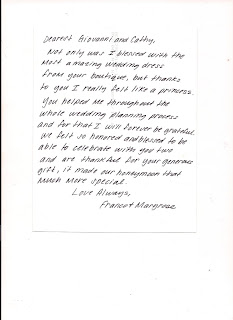 Dearest Giovanni and Cathy,
Not only was I blessed with the
most amazing wedding dress
from your boutique, but thanks
to you I really felt like a princess.
You helped me throughout the
whole wedding planning process
and for that I will forever be grateful.
We felt so honored and blessed to be
able to celebrate with you two
and are thankful for your generous
gift, it made our honeymoon that
much more special.
Love Always,